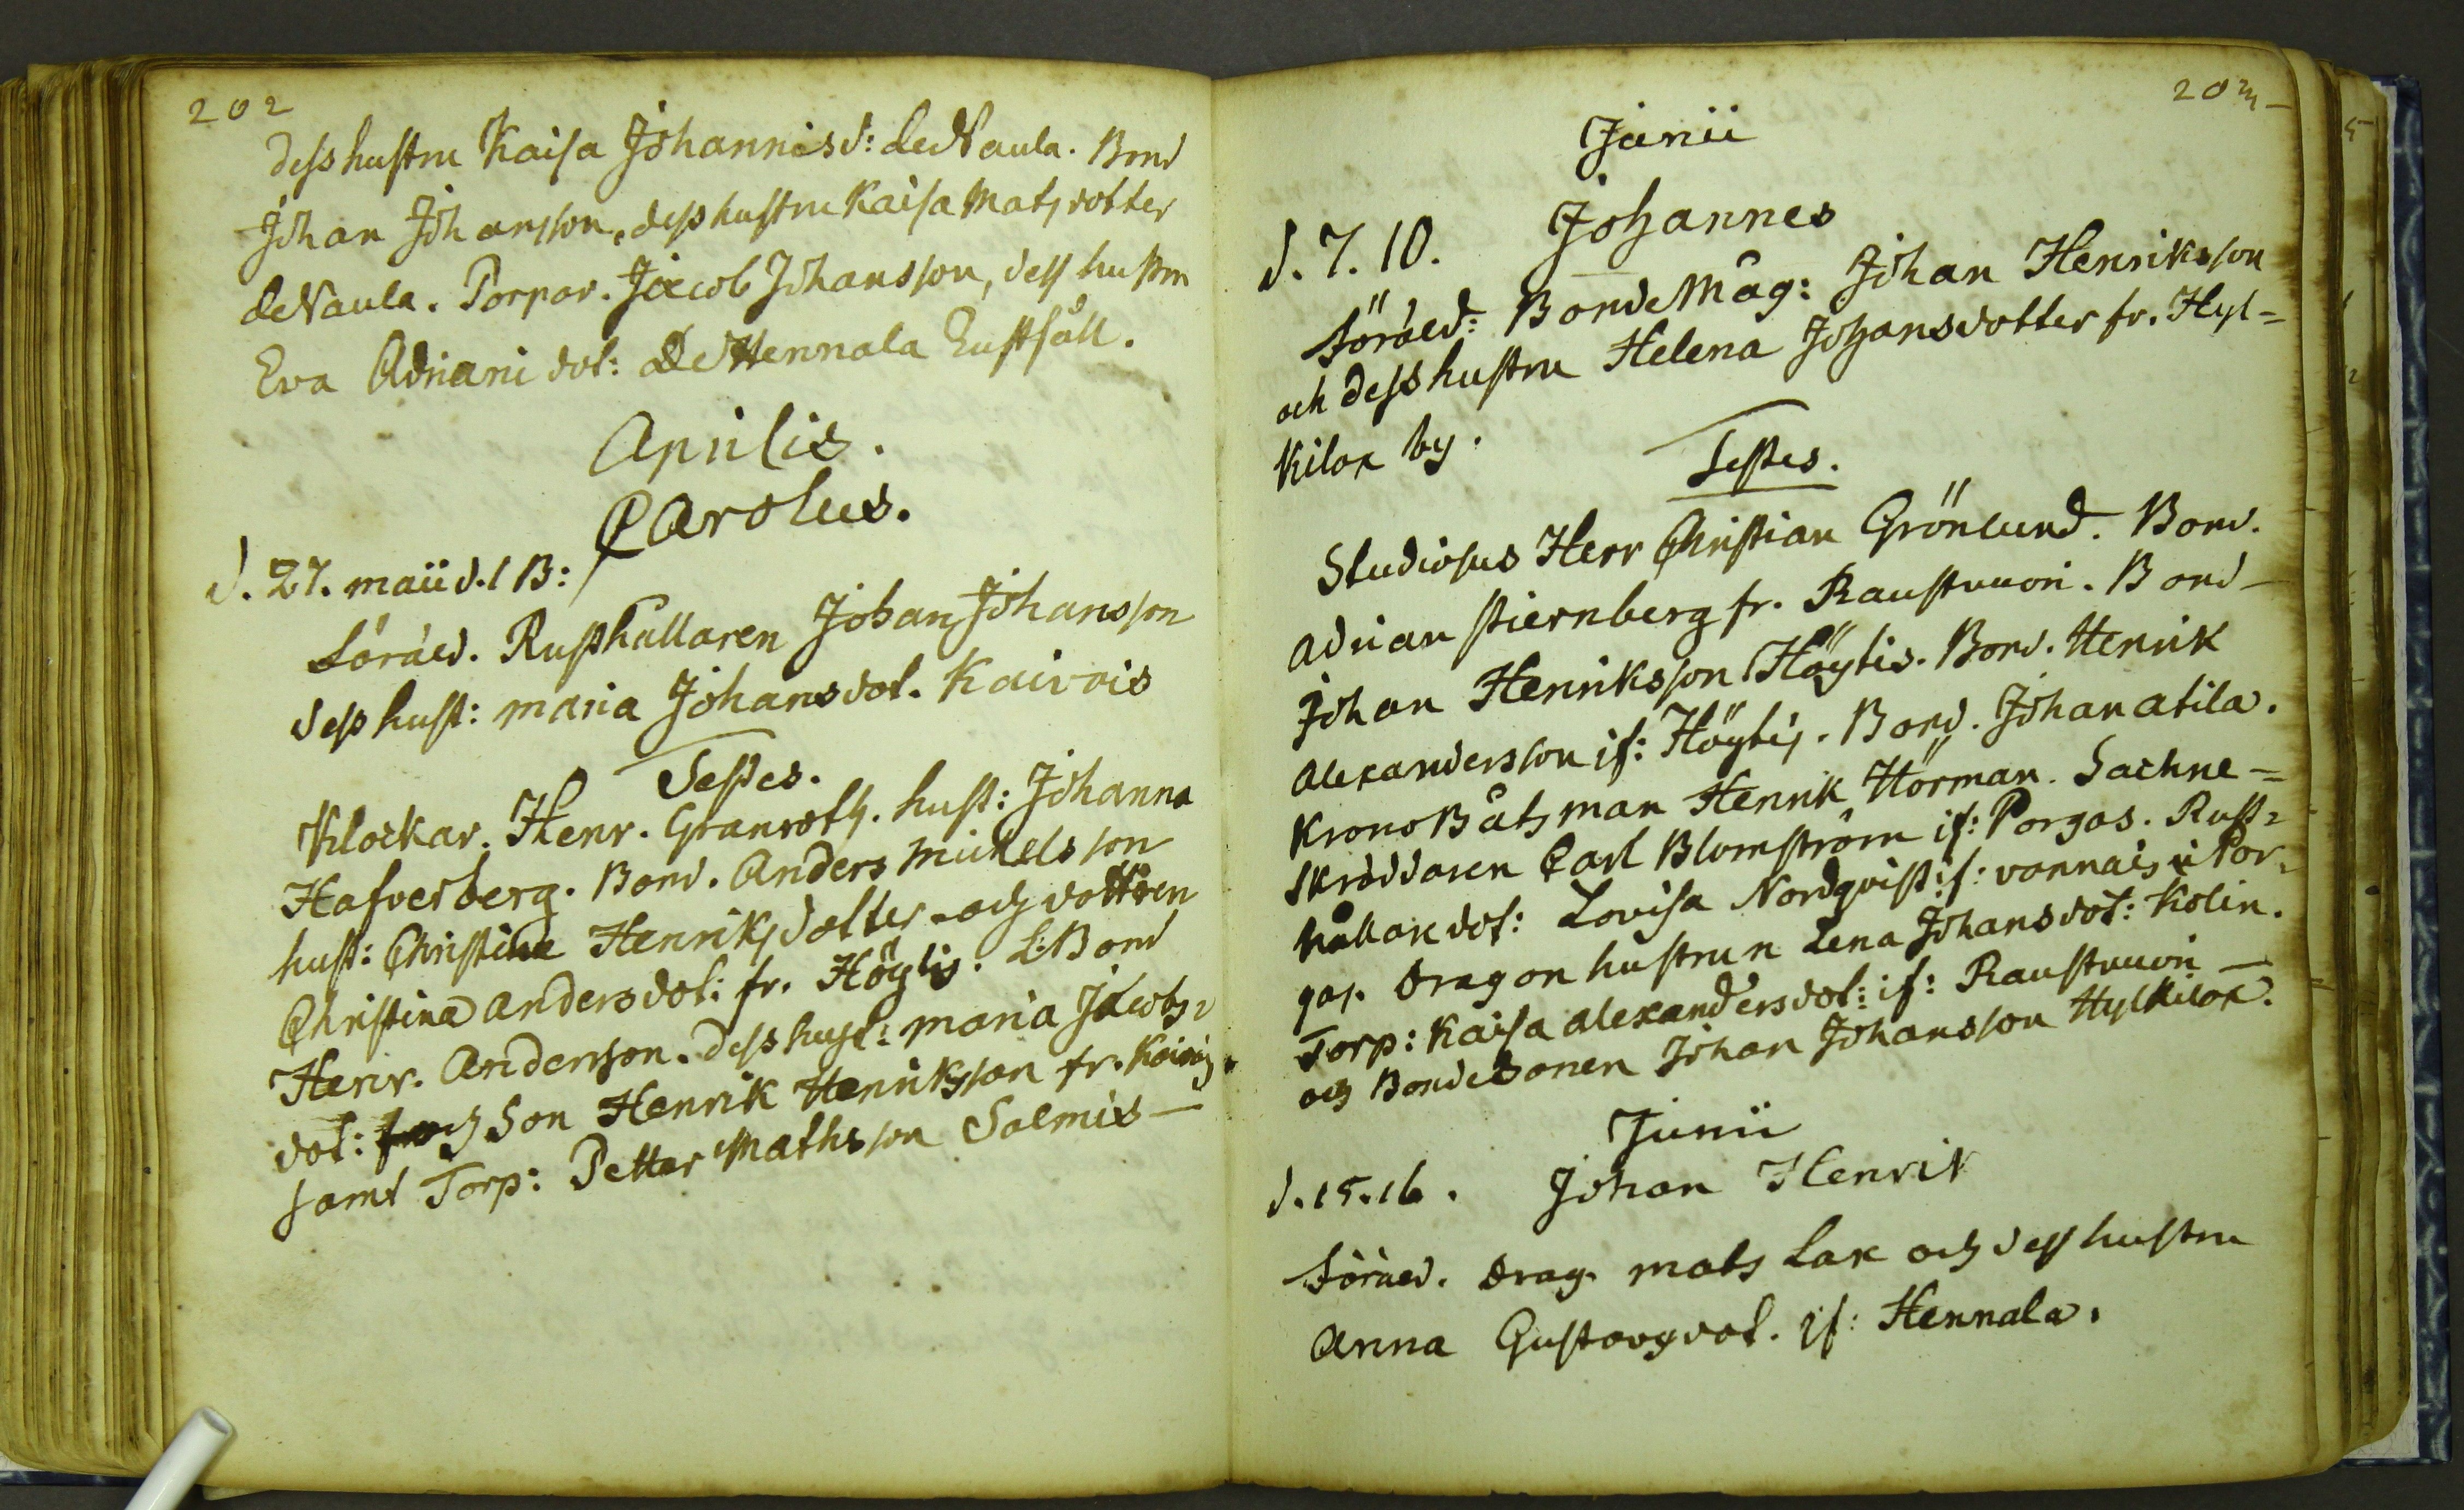 202
dess hustru Kaisa Johannisd: de Naula. Bond
Johan Johansson, dess hustru Kaisa Mats dotter
de Naula. Torpar. Jacob Johansson, dess hustru
Eva Adriani dot: De Hennala
Aprilis.
Carolus.
d. 27. maii d. 1 B:
Föräld. Rusthållaren Johan Johansson
dess hust: maria Johansdot. Kairois
Testes.
Klockar. Henr. Granroth. hust: Johanna
Hafverberg. Bond. Anders Mickelsson
hust: Christina Henriksdotter och dottren
Christina Andersdot: fr. Höytis. L: Bond
Henr. Andersson. dess hust: maria Jacobs=
dot: och Son Henrik Henriksson fr. Kairois
samt Torp: Petter Mathsson Salmis —
203 —
Junii
d. 7. 10. Johannes
Föräld: Bonde Måg: Johan Henriksson
och dess hustru Helena Johansdotter fr. Hyl=
kilax by.
Testes.
Studiosus Herr Christian Grönlund. Bond.
Adrian Stiernberg fr. Raustvuori. Bond —
Johan Henriksson Höytis. Bond. Henrik
Alexandersson if: Höytis. Bond. Johan Atila.
Krono Båtsman Henrik Hörman. Sockne=
skräddaren Carl Blomström if: Porgas. Rust=
hållaredot: Lovisa Nordqvist if: vannais i Por=
gas. Dragon hustrun Lena Johansdot: Kolin.
Torp: Kaisa Alexandersdot: if: Raustvuori —
och Bondesonen Johan Johansson Hylkilax.
Junii
d. 15. 16. Johan Henrik
Föräld. Drag. Mats Lax och dess hustru
Anna Gustavsdot. if: Hennala.